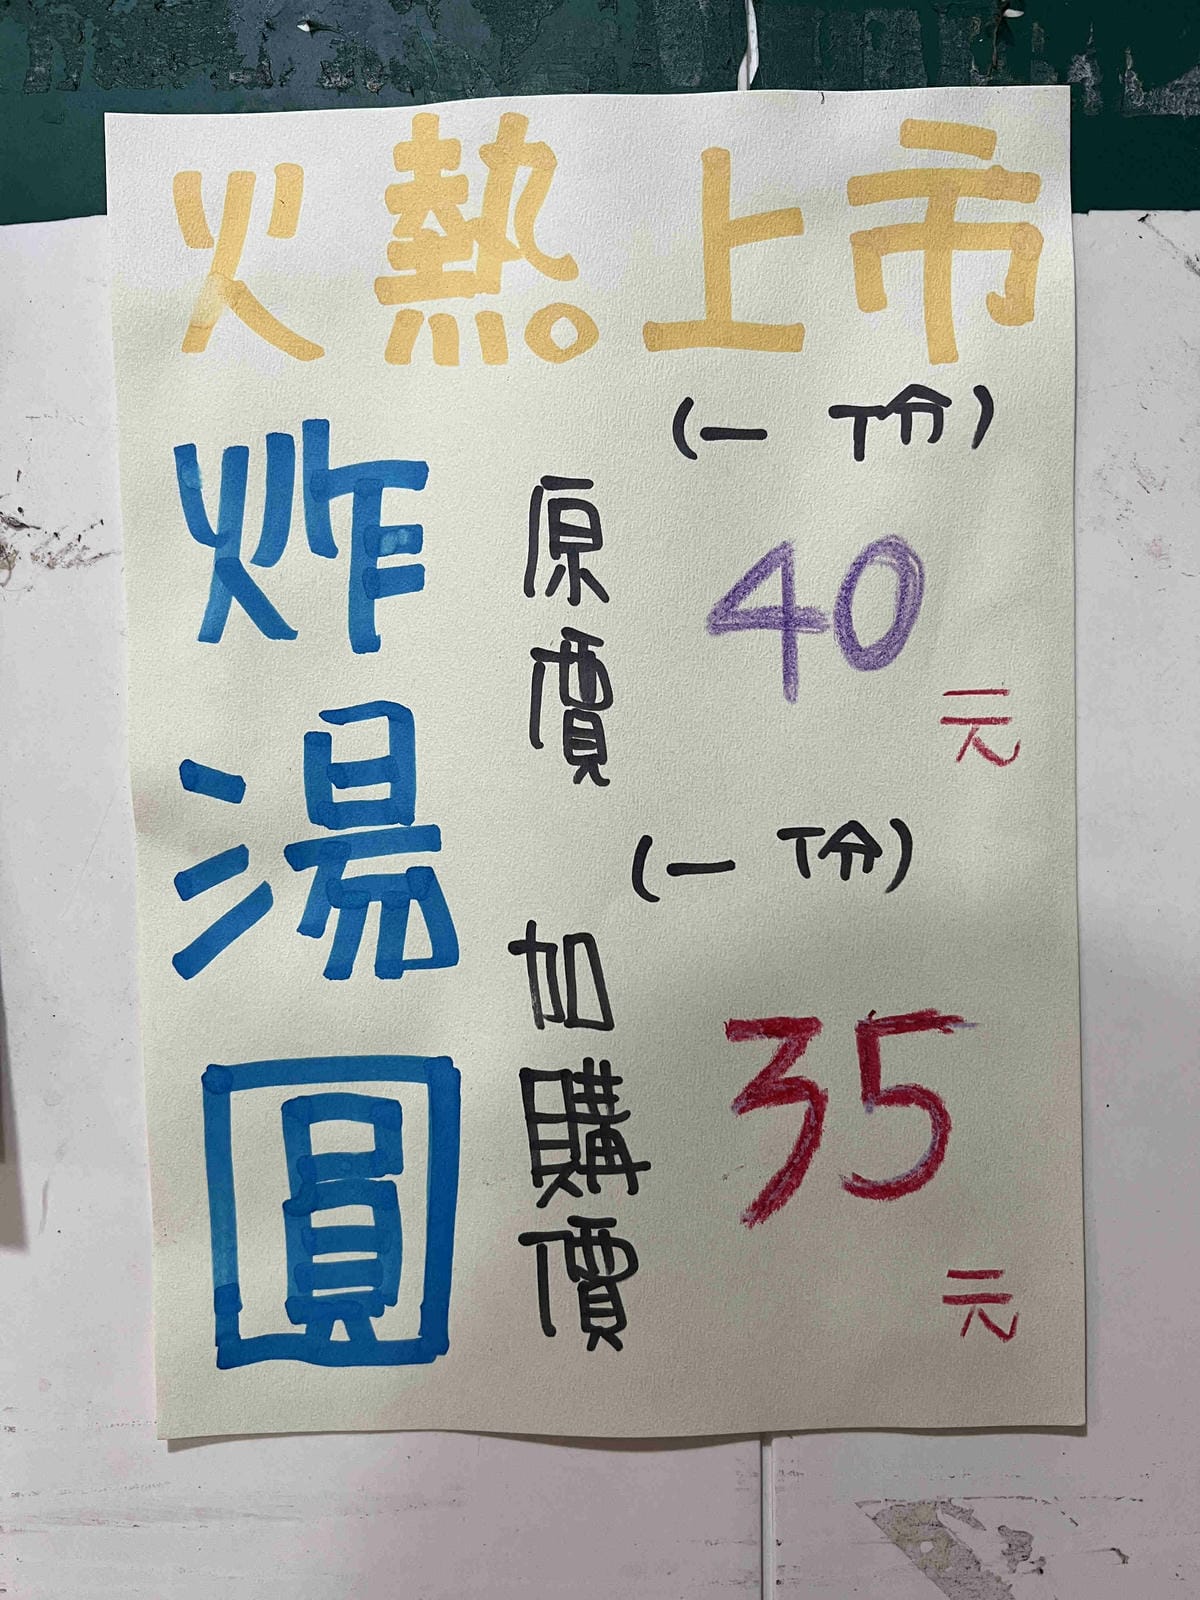 火熱上市
炸湯圓
(一份)
原價 40元
(一份)
加購價 35元